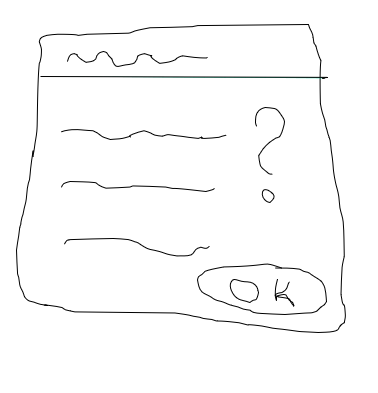 ?
OK